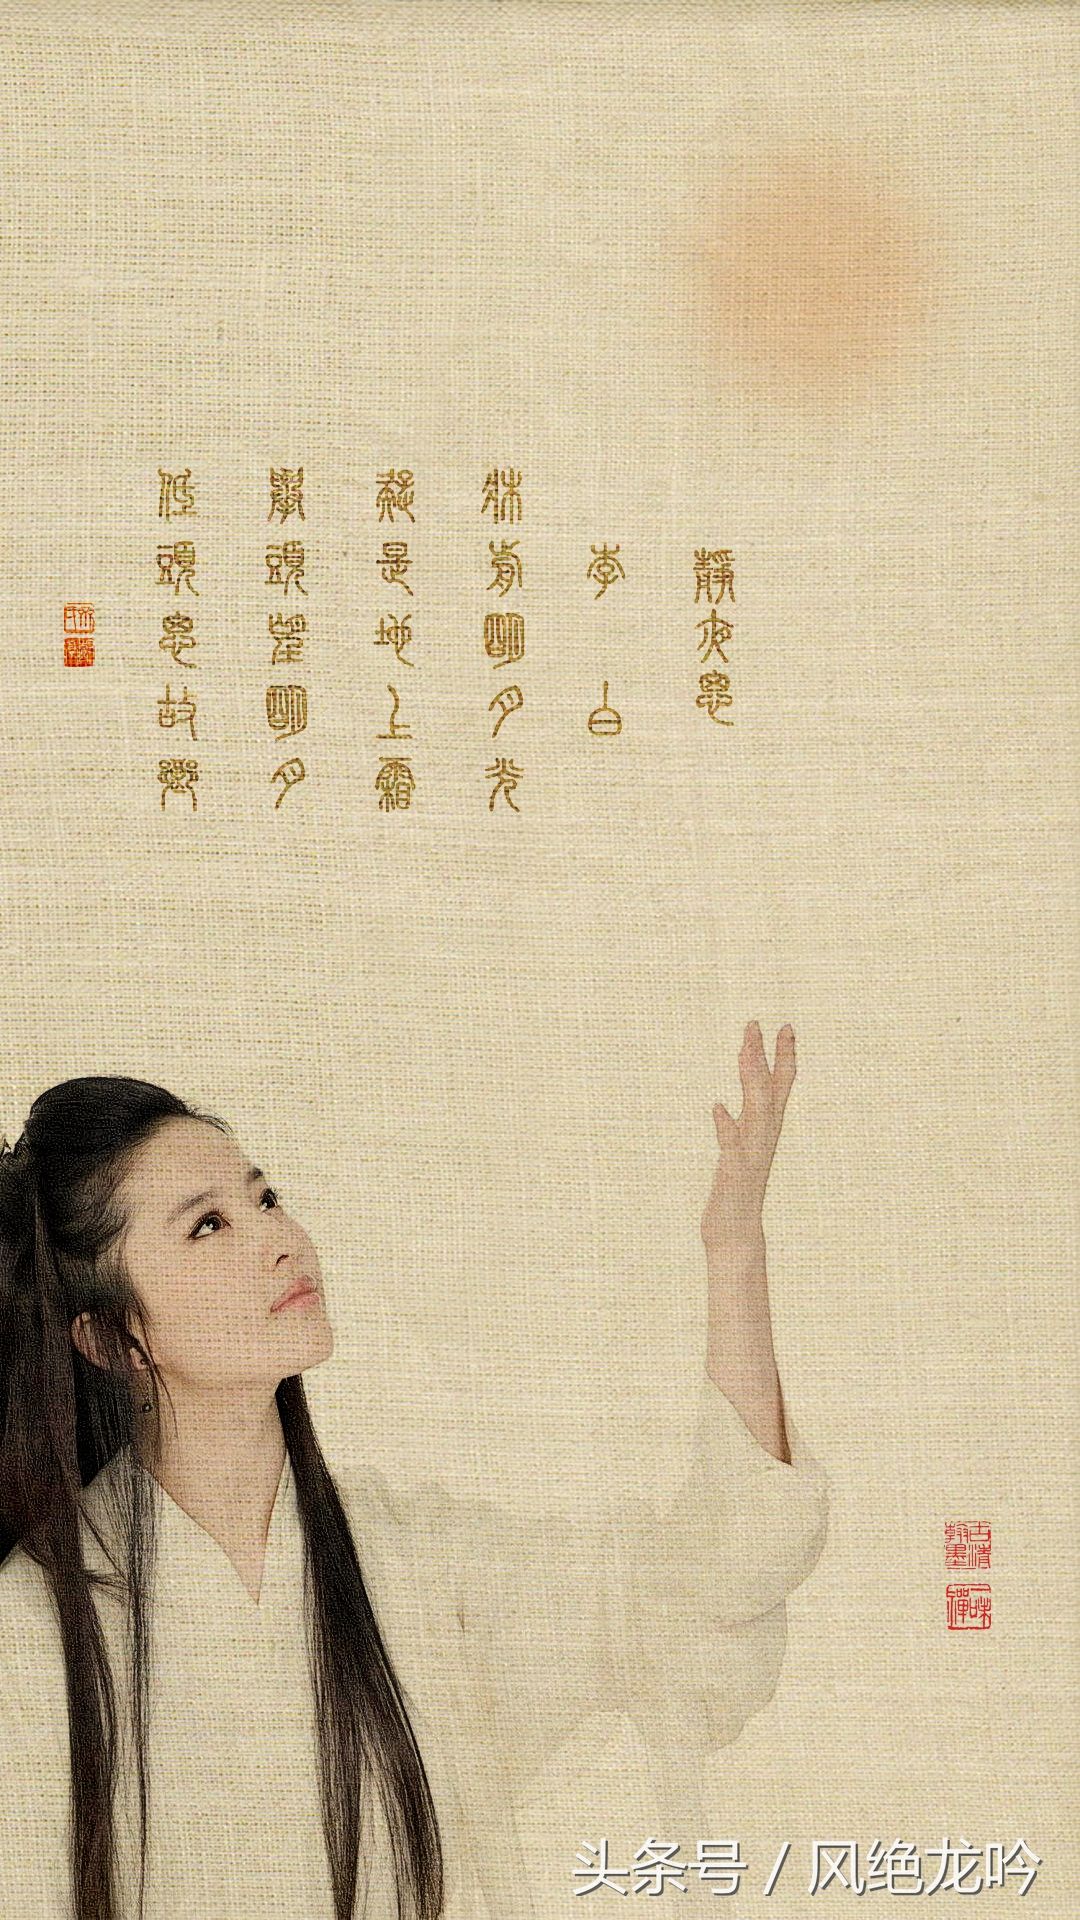 靜夜思
李白
牀前明月光
疑是地上霜
舉頭望明月
低頭思故鄉
古清
翰墨
一味
禪
头条号 / 风绝龙吟